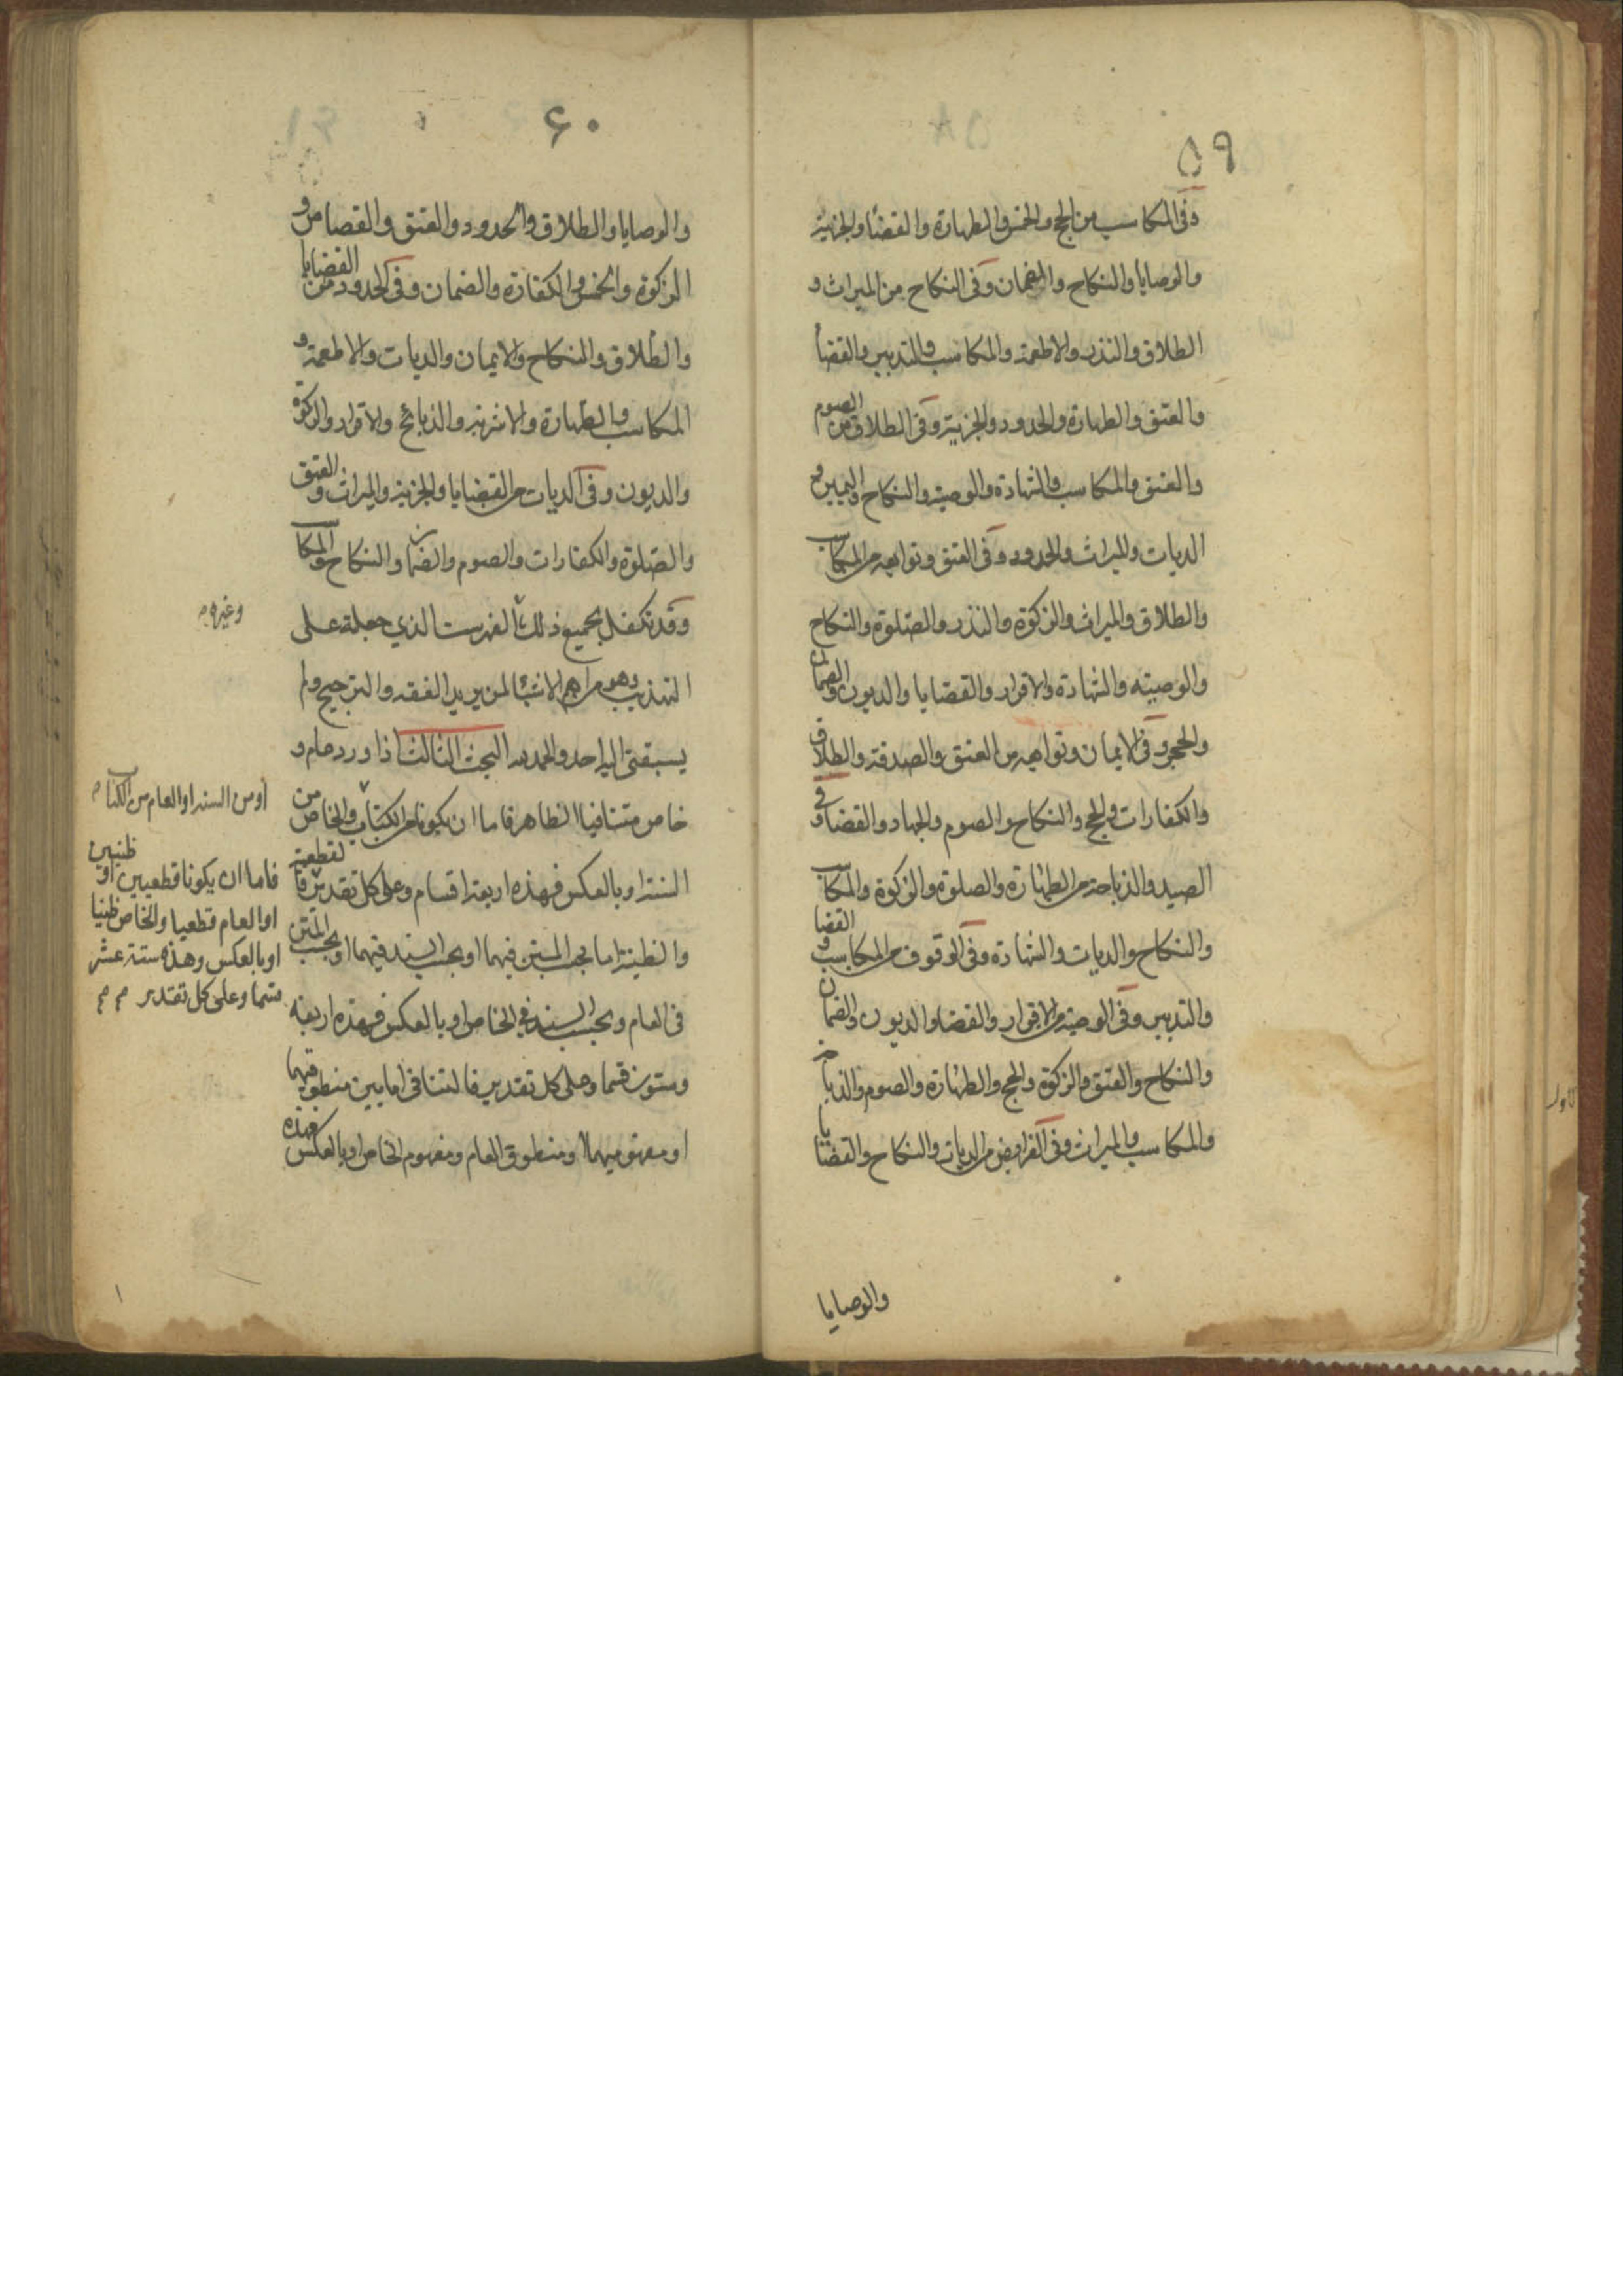 ٥٩
وفى المكاسب من الحج والخمس والطهارة والقضا والجزية
والوصايا والنكاح والضمان وفى النكاح من الميراث و
الطلاق والنذر والاطعمة والمكاسب والتدبير والقضا
والعتق والطهارة والحدود والجزية وفى الطلاق من الصوم
والعتق والمكاسب والشهادة والوصية والنكاح واليمين و
الديات والميراث والحدود وفى العتق وتوابعه من المكاسب
والطلاق والميراث والزكوة والنذر والصلوة والنكاح
والوصيته والشهادة والاقرار والقضايا والديون والضمان
والحجر وفى الايمان وتوابعه من العتق والصدقة والطلاق
والكفارات والحج والنكاح والصوم والجهاد والقضا وفى
الصيد والذباحة من الطهارة والصلوة والزكوة والمكاسب
والنكاح والديات والشهادة وفى الوقوف من المكاسب والقضا
والتدبير وفى الوصية من الاقرار والقضا والديون والضمان
والنكاح والعتق والزكوة والحج والطهارة والصوم والذبايح
والمكاسب والميراث وفى الفرايض من الديات والنكاح والقضايا
والوصايا
٦٠
والوصايا والطلاق والحدود والعتق والقصاص و
الزكوة والخمس والكفارة والضمان وفى الحدود من القضايا
والطلاق والنكاح والايمان والديات والاطعمة و
المكاسب والطهارة والاشربة والذبائح والاقرار والزكوة
والديون وفى الديات من القضايا والجزية والميراث والعتق
والصلوة والكفارات والصوم والضمان والنكاح والمكاسب
وقد تكفل بجميع ذلك الفهرست الذي جعلته على
التهذيب وهو من اهم الاشيا لمن يريد الفقه والترجيح ولم
يسبقنى اليه احد والحمد لله البحث الثالث اذا ورد عام و
خاص متنافيا الظاهر فاما ان يكونا من الكتاب والخاص من
السنة او بالعكس فهذه اربعة اقسام وعلى كل تقدير فالقطعية
والظنية اما بحسب المتن فيهما او بحسب السند فيهما او بحسب المتن
فى العام وبحسب السند في الخاص او بالعكس فهذه اربعة
وستون قسما وعلى كل تقدير فالتنافى اما بين منطوقيهما
او مفهوميهما او منطوق العام ومفهوم الخاص او بالعكس فهذه
وغيره م
او من السنة او العام من الكتاب م
فاما ان يكونا قطعيين او ظنيين
او العام قطعيا والخاص ظنيا
او بالعكس وهذه ستة عشر
قسما وعلى كل تقدير م م